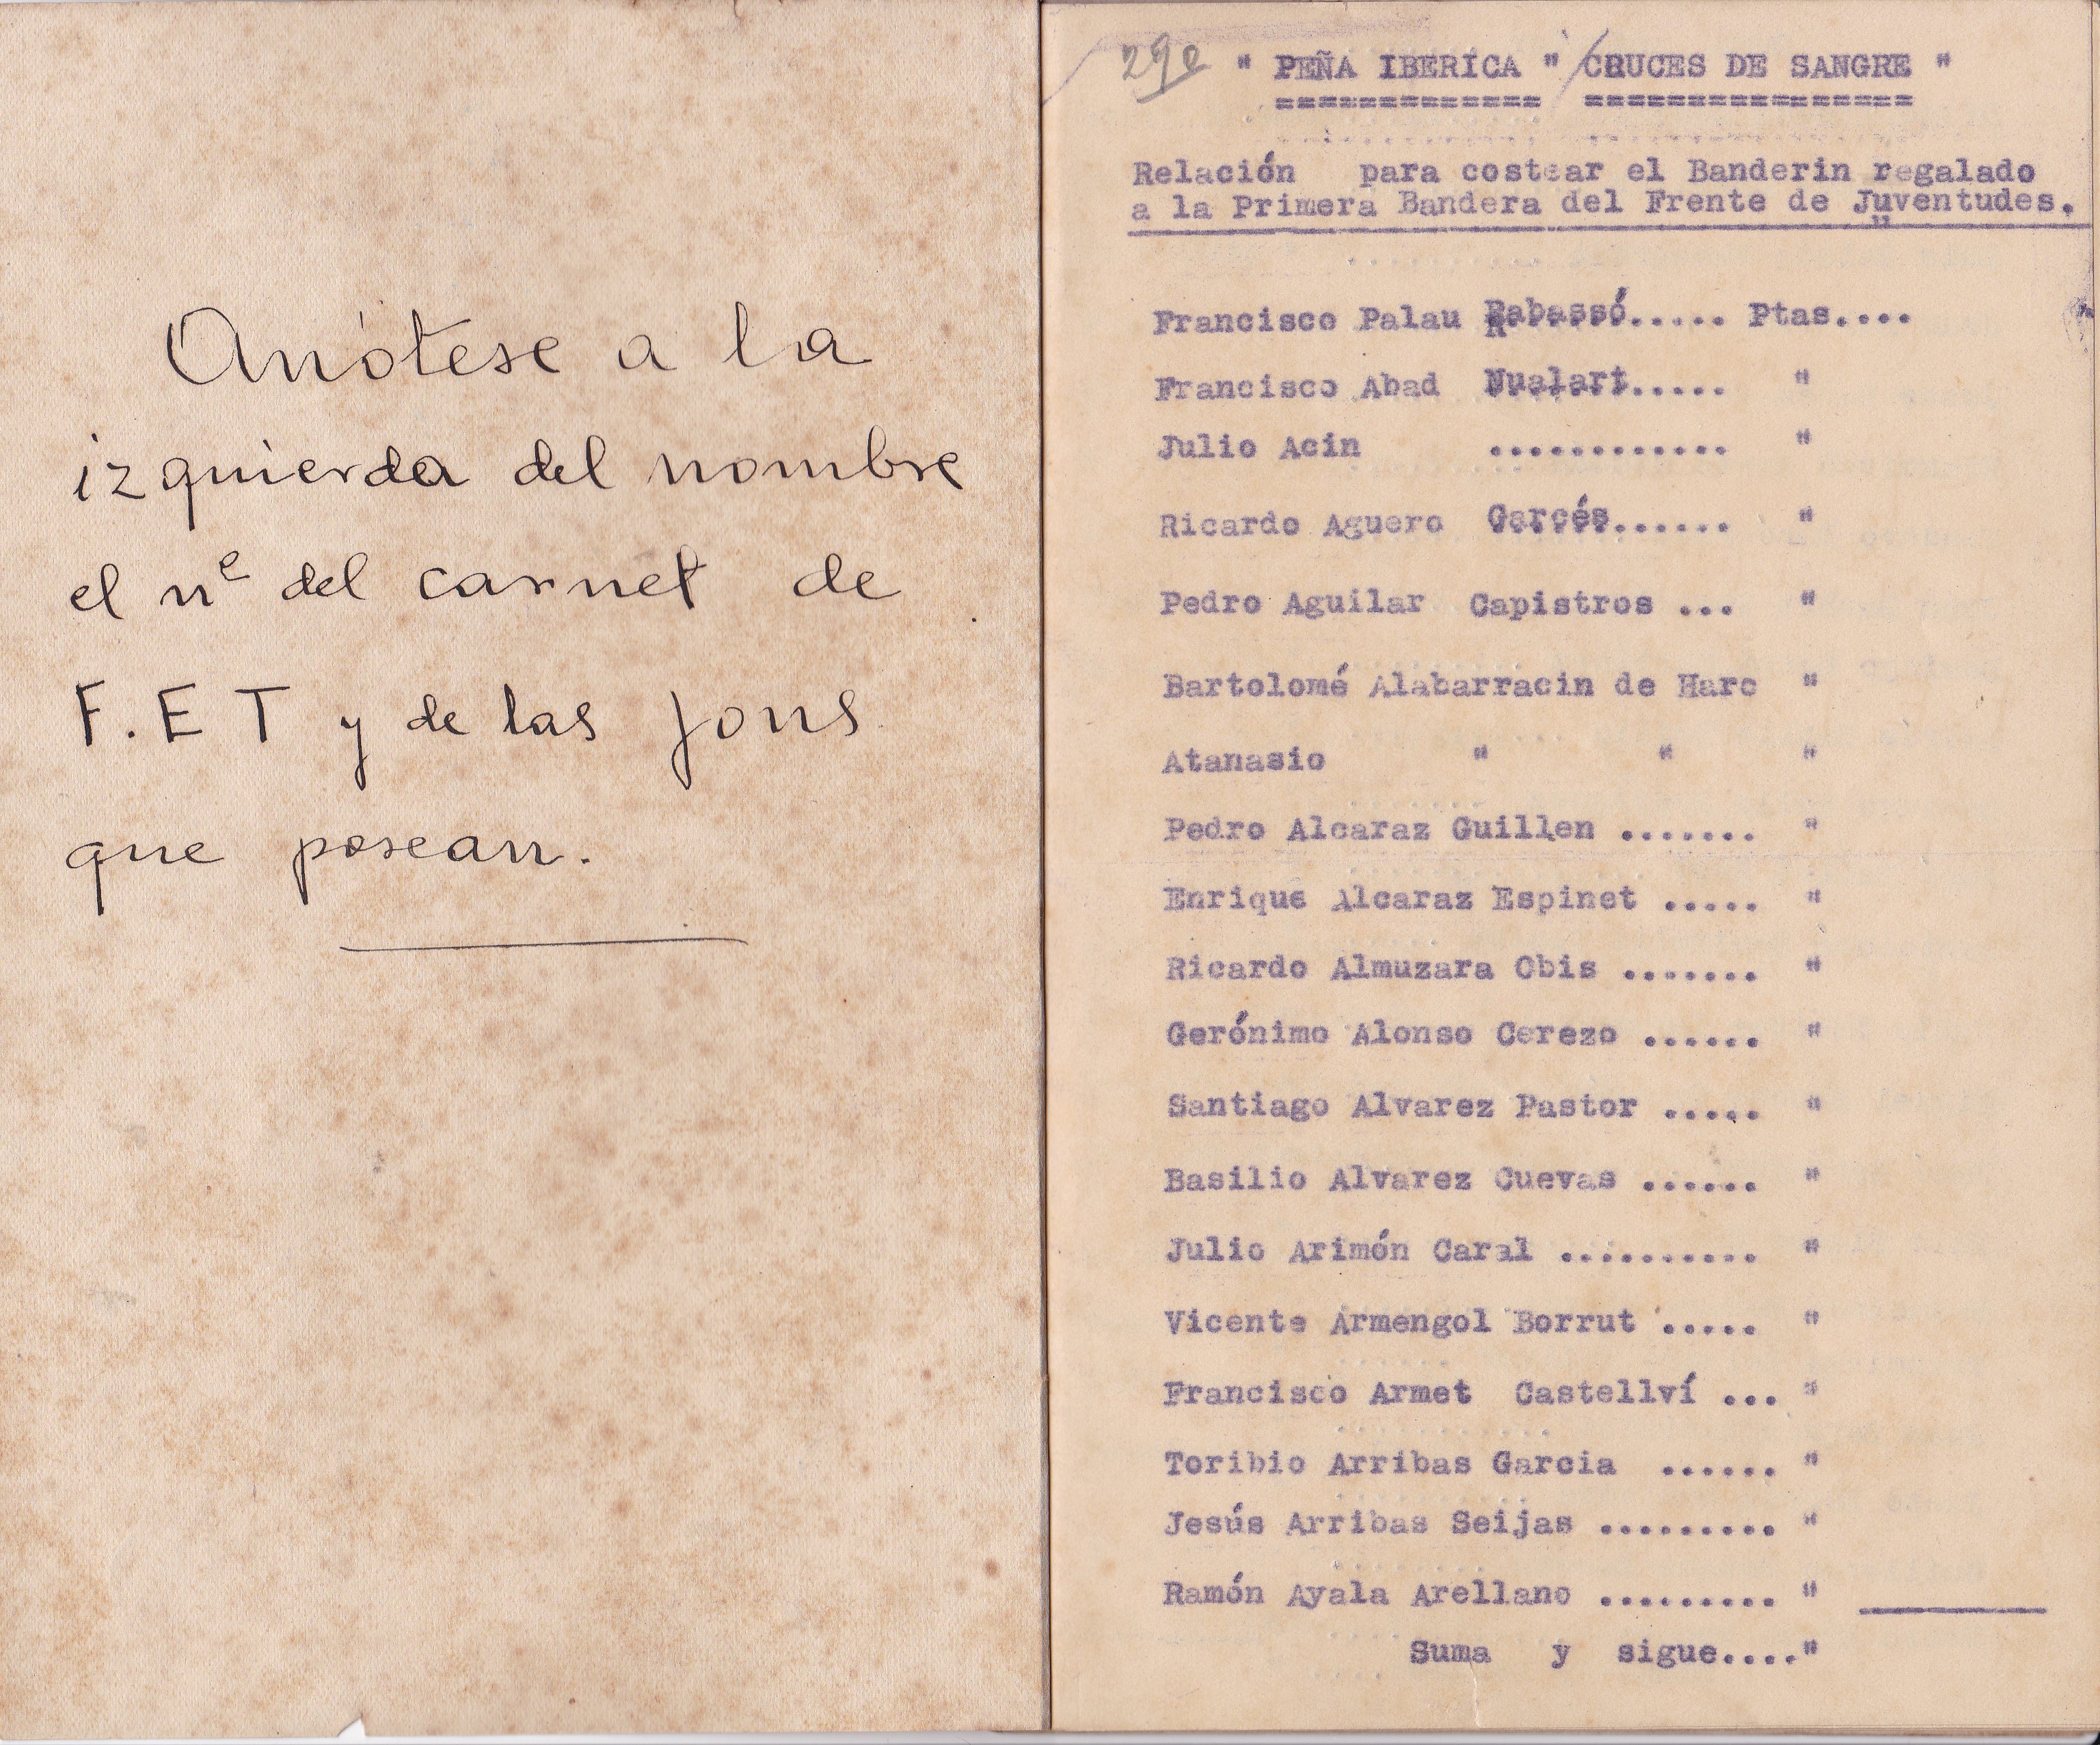 Anótese a la
izquierda del nombre
el nº del carnet de
F.E T y de las Jons
que posean.
" PEÑA IBERICA " / CRUCES DE SANGRE "
============= ================
Relación para costear el Banderin regalado
a la Primera Bandera del Frente de Juventudes.
Francisco Palau Rabassó..... Ptas....
Francisco Abad Nualart..... "
Julio Acin ............ "
Ricardo Aguero Garcés...... "
Pedro Aguilar Capistros ... "
Bartolomé Alabarracin de Haro "
Atanasio " " "
Pedro Alcaraz Guillen ....... "
Enrique Alcaraz Espinet ..... "
Ricardo Almuzara Obis ....... "
Gerónimo Alonso Cerezo ...... "
Santiago Alvarez Pastor ..... "
Basilio Alvarez Cuevas ...... "
Julio Arimón Caral .......... "
Vicente Armengol Borrut ..... "
Francisco Armet Castellví ... "
Toribio Arribas Garcia ...... "
Jesús Arribas Seijas ......... "
Ramón Ayala Arellano ......... "
Suma y sigue...."